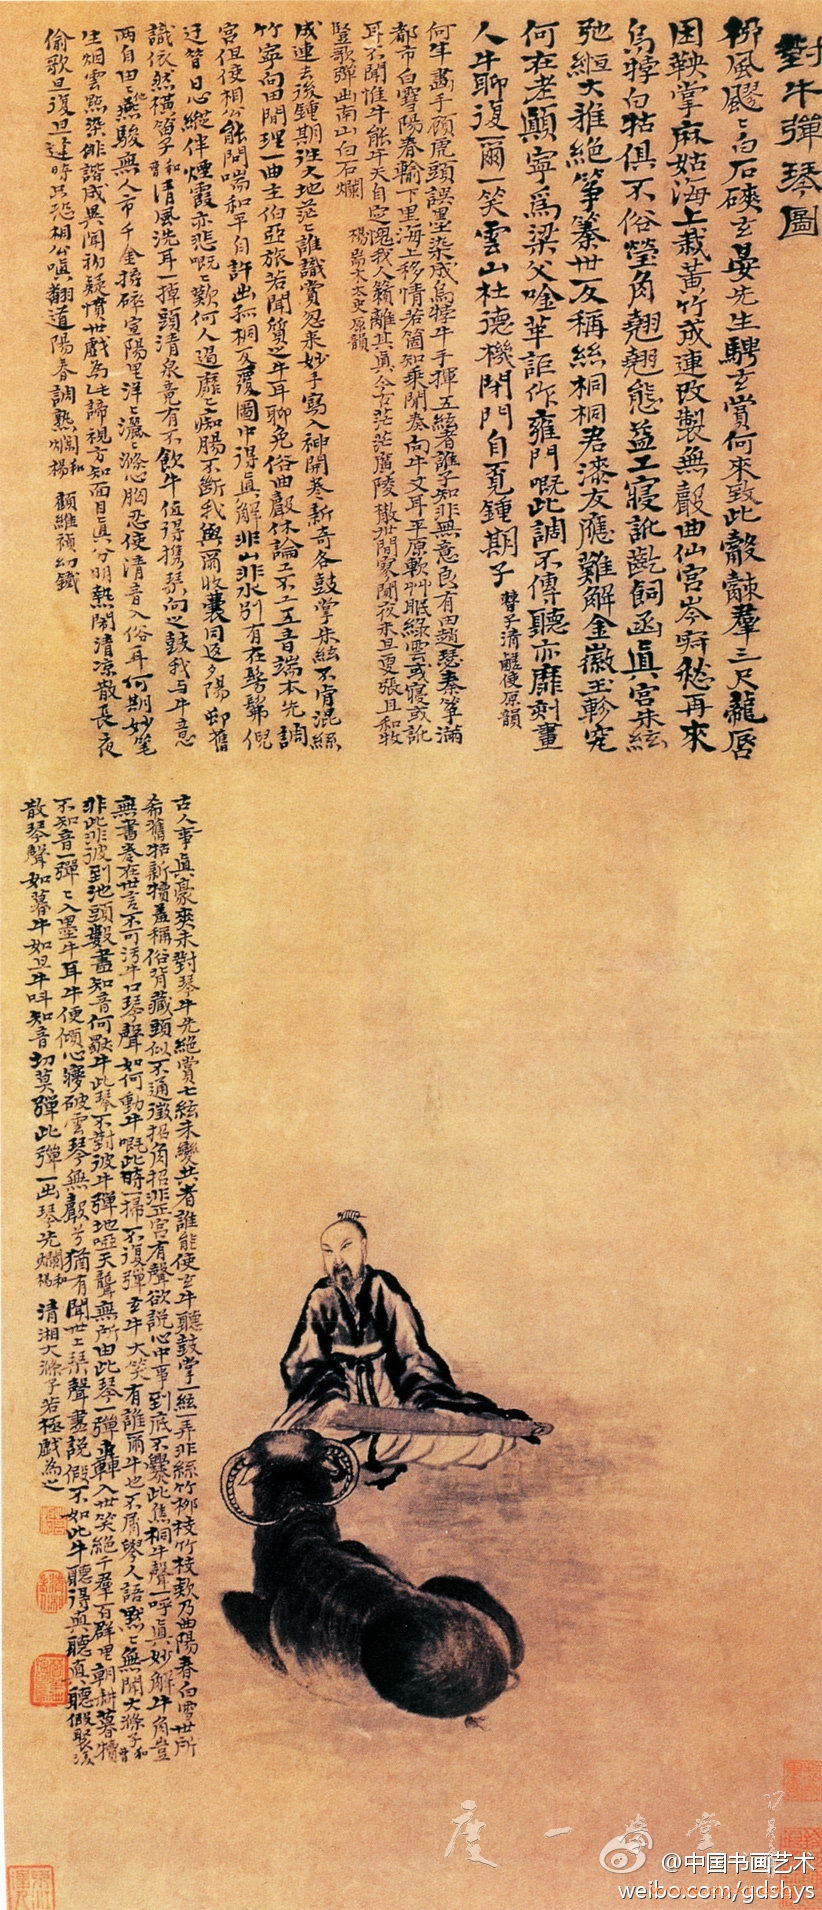 對牛彈琴圖
柳風颼〻白石磢玄晏先生騁玄賞何來致此觳觫羣三尺龍唇
困鞅掌麻姑海上栽黃竹成連改製無聲曲仙宮岑時愁再來
烏牸白牯俱不俗瑩角翹翹態益工寢訛齕飼函真宮朱絃
弛緪大雅絕箏纂世反稱絲桐桐君漆友應難解金徽玉軫究
何在老顛寧為梁父唫莘詎作雍門嘅此調不傳聽亦靡刻畫
人牛聊復爾一笑雲山杜德機閉門自覓鍾期子 普子清鹺使原韻
何年畫手顧虎頭誤墨染成烏牸牛手揮五絃者誰子知非無意良有由趙瑟秦箏滿
都市白雪陽春輸下里海上移情若箇知乘閒奏向牛丈耳平原軟艸眠綠雲或寢或訛
耳不聞惟牛能牛天自定媿我人籟離其真今古茫茫廣陵散世間寥闃夜未旦更張且和牧
豎歌彈出南山白石爛 楊耑木太史原韻
成連去後鍾期往大地茫〻誰識賞忽來妙手寫入神開卷新奇各鼓掌朱絃不肯混絲
竹寧向田間理一曲主伯亞旅若聞質之牛耳聊免俗曲聲休論工不工五音端本先調
宮但使相公能問喘和平自許出孤桐反覆圖中得真解非山非水別有在髣髴倪
迂昔日心縱伴煙霞亦悲嘅〻歎何人過靡〻痴腸不斷我與爾收囊同返夕陽邨舊
識依然橫笛子 和普 清風洗耳一掉頭清泉竟有不飲牛值得携琴向之鼓我與牛意
兩自由〻燕駿無人市千金擲碎宣陽里洋〻灑〻滌心胸忍使清音入俗耳何期妙筆
生烟雲點染俳諧成異聞初疑憤世戲為此諦視方知面目真分明熱鬧清凉散長夜
偷歌旦復旦逢時只恐相公嗔翻道陽春調熟爛 和楊 顧維禎幻鐵
古人事真豪爽未對琴牛先絕賞七絃未變共者誰能使玄牛聽鼓掌一絃一弄非絲竹柳枝竹枝欵乃曲陽春白雪世所
希舊牯新犢羞稱俗背藏頭似不通徵招角招非正宮有聲欲說心中事到底不爨此焦桐牛聲一呼真妙解牛角豈
無書卷在世言不可污牛口琴聲如何動牛嘅此時一掃不復彈玄牛大笑有誰爾牛也不屑學人語默〻無聞大滌子 和普
非此非彼到池頭數盡知音何獨牛此琴不對彼牛彈地啞天聾無所由此琴一彈轟入世笑絕千羣百群里朝耕暮犢
不知音一彈〻入墨牛耳牛便傾心夢破雲琴無聲兮猶有聞世上琴聲盡說假不如此牛聽得真聽真聽假聚復
散琴聲如暮牛如旦牛叫知音切莫彈此彈一出琴先爛 和楊 清湘大滌子若極戲為之
度一學堂
@中国书画艺术
weibo.com/gdshys